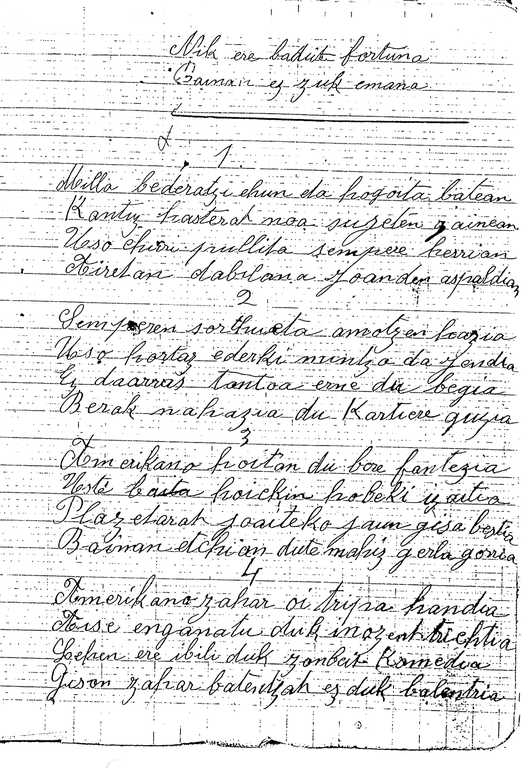 Nik ere badut fortuna
Bainan ez zuk emana
1
Milla bederatzi ehun da hogoita batean
Kantuz hasterat noa sujetén gainean
Uso churi pullita sempere herrian
Airetan dabilana joanden aspaldian
2
Semperen sorthu eta amotzen hazia
Uso hortaz ederki mintzo da jendia
Ez da arras tontoa erne du begia
Berak nahazia du Kartiere guzia
3
Amerikano hoitan du bere fantezia
Uste baita hoiekin hobeki
Plazetarat joaiteko jaun gisa beztia
Bainan etchian dute mahiz gerla gorria
4
Amerikano zahar oi tripa handia
Aise enganatu duk inozent trichtia
Lehen ere ibili duk zonbeit Komedia
Gison zahar batentzat ez duk balentria